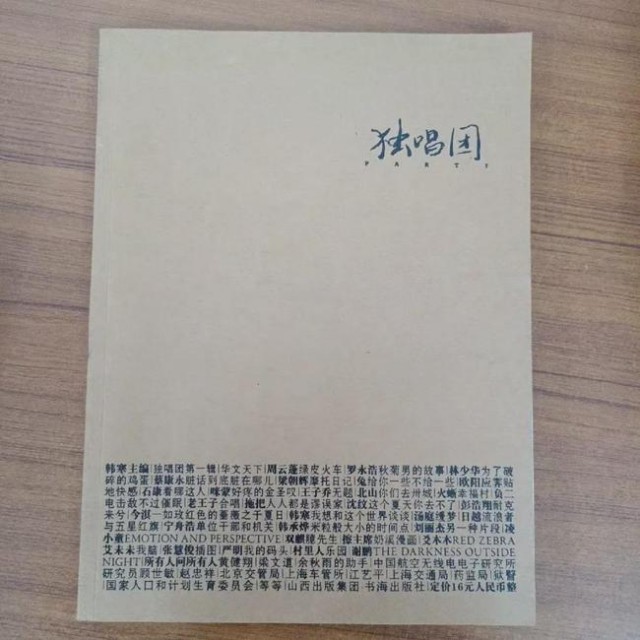 独唱团
PART 1
韩寒主编|独唱团第一辑|华文天下|周云蓬绿皮火车|罗永浩秋菊男的故事|林少华为了破
碎的鸡蛋|蔡康永脏话到底脏在哪儿|梁朝辉摩托日记|兔给你一些不给一些|欧阳应霁贴
地快感|石康看哪这人|咪蒙好疼的金圣叹|王子乔无题|北山你们去卅城|火蜥幸福村|负二
电击敌不过催眠|老王子合唱|拖把人人都是谬误家|沈玟这个夏天你去不了|彭浩翔耐克
韩寒我想和这个世界谈谈|汤唯缓梦|日越流浪者
与五星红旗|宁舟浩单位|于那和机关|韩水烨米粒般大小的时间点|胡赳赳另一种片段|凌
小童EMOTION AND PERSPECTIVE|双麒麟先生|摇主席奶溪漫画|艾木木RED ZEBRA
艾未未我脑|张慧俊插图|严明我的码头|村里人乐园|谢鹏THE DARKNESS OUTSIDE
NIGHT|所有人问所有人|黄健翔|梁文道|余秋雨的助手|中国航空无线电电子研究所
研究员顾世敏|赵忠祥|北京交管局|上海车管所|江艺平|上海交通局|药监局|狱警
|国家人口和计划生育委员会|等等|山西出版集团 书海出版社|定价16元人民币整